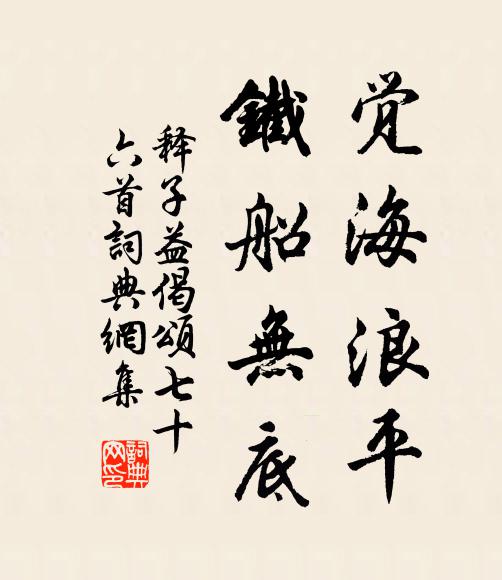 觉海浪平
鐵船無底
释子益偈頌七十
六首詞典網集
詞典網印